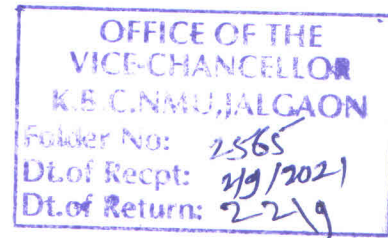 OFFICE OF THE
VICE-CHANCELLOR
K.B.C.NMU,JALGAON
Folder No: 2565
Dt.of Recpt: 2/9/2021
Dt.of Return: 22/9